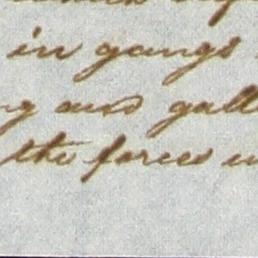 in gangs
ng and gall
the forces w